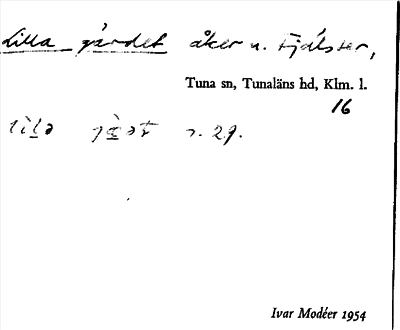 Lilla gärdet åker n. tjälster,
Tuna sn, Tunaläns hd, Klm. l.
16
n. 29.
Ivar Modéer 1954